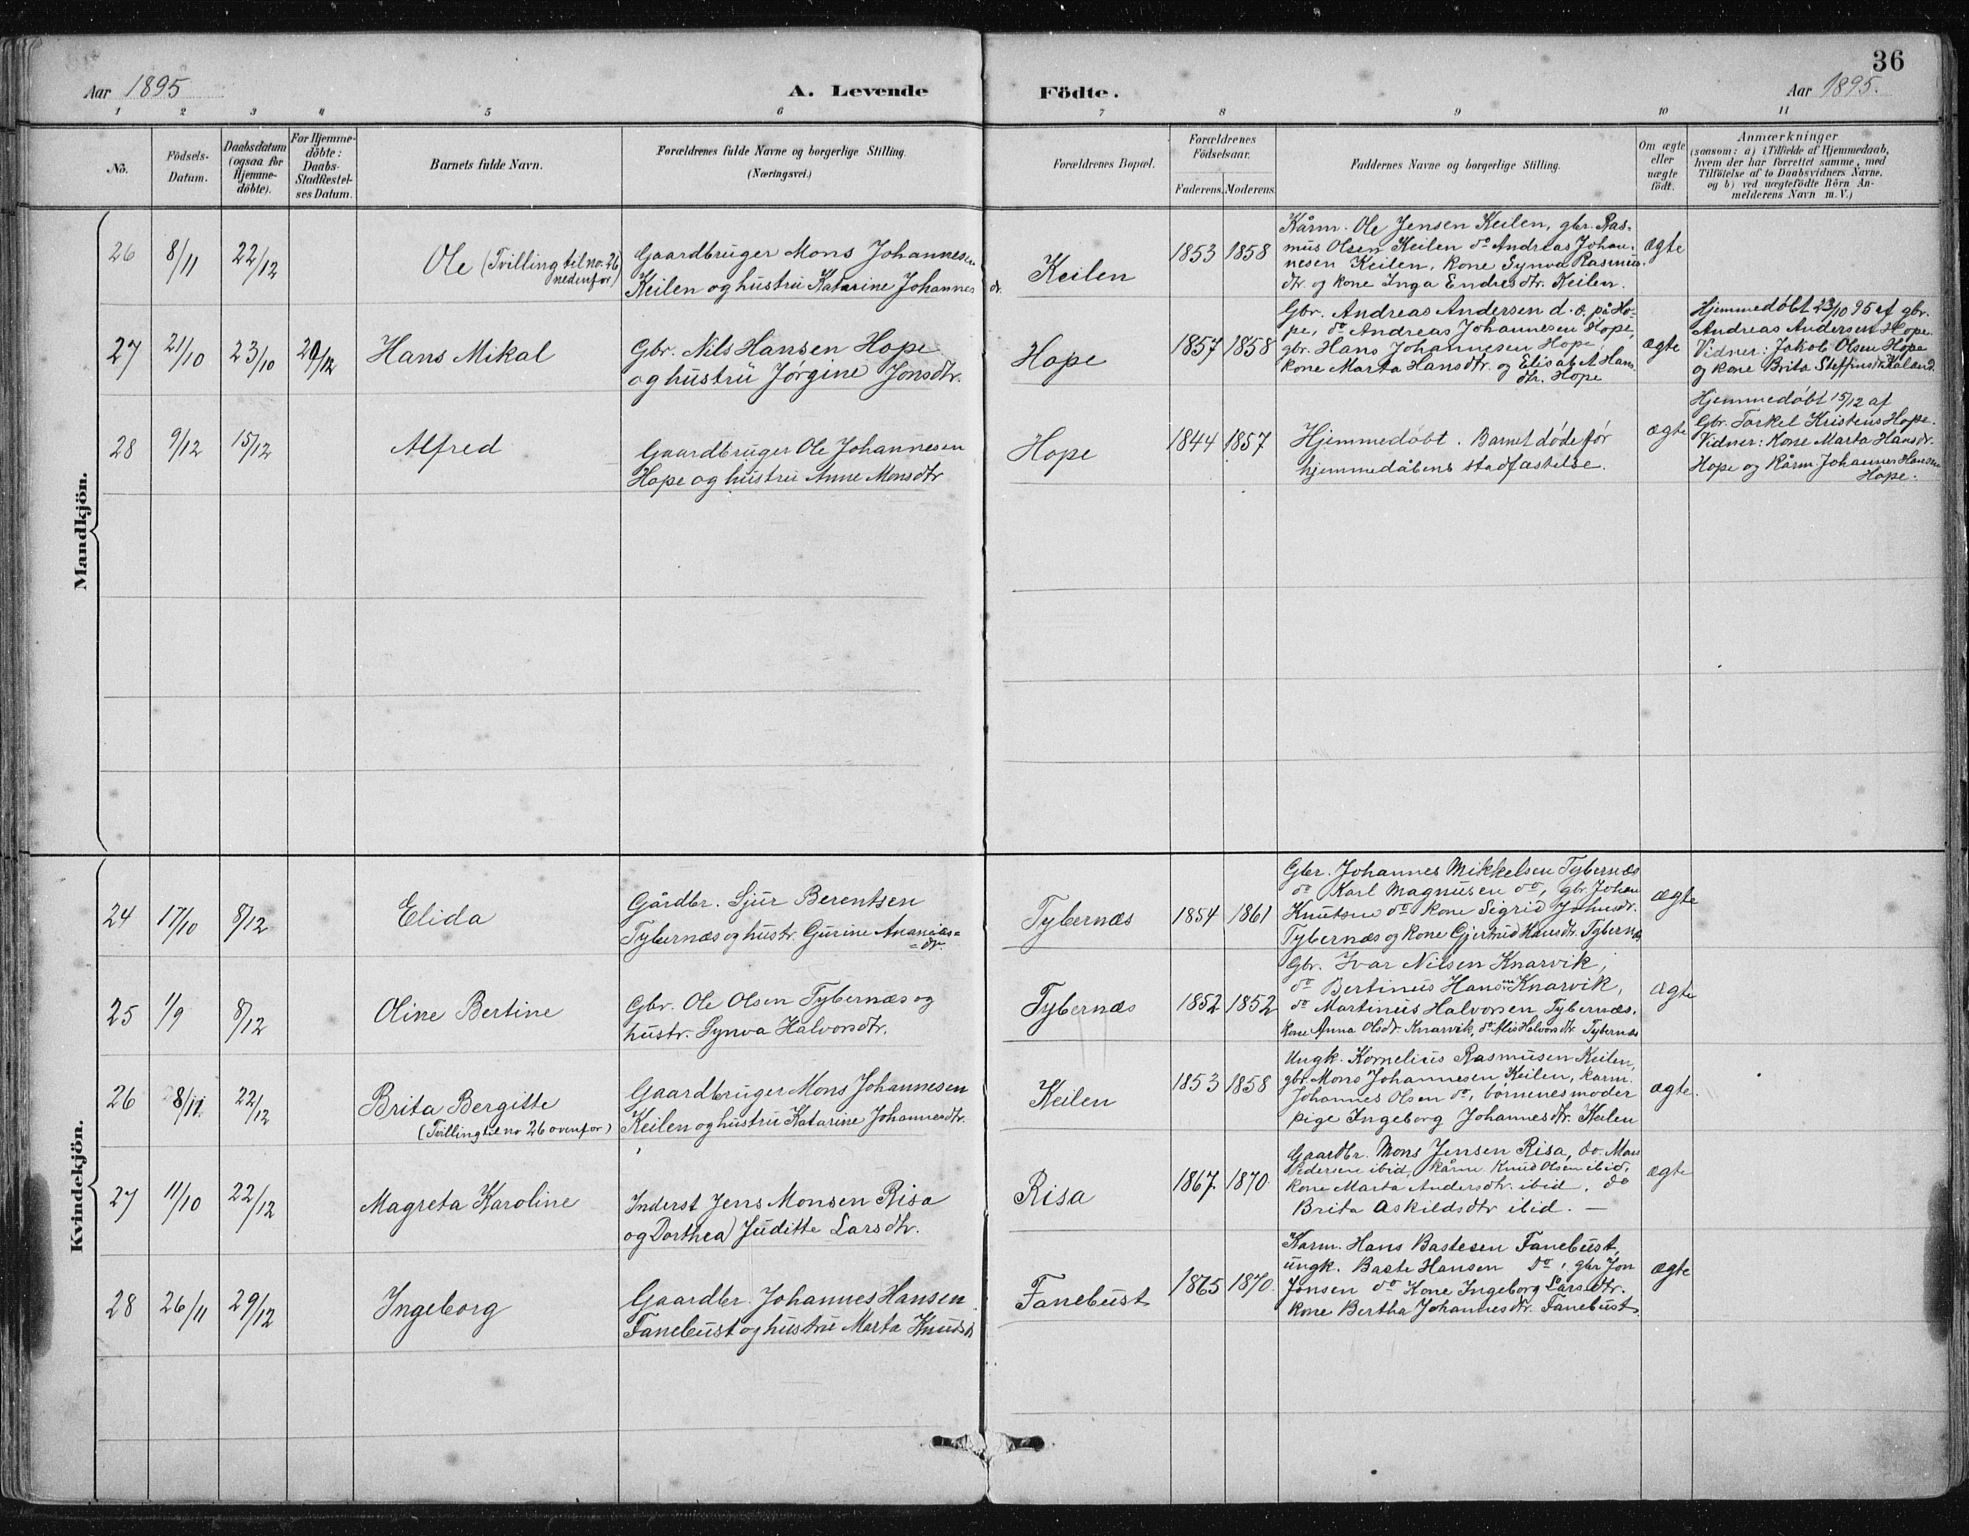 36
Aar 1895
A. Levende
Födte.
Aar 1895.
1 2 3 4 5 6 7 8 9 10 11
No.
Födsels-
Datum.
Daabsdatum
(ogsaa for
Hjemme-
döbte).
For Hjemme-
döbte:
Daabs-
Stadfæstel-
ses Datum.
Barnets fulde Navn.
Forældrenes fulde Navne og borgerlige Stilling.
(Næringsvei.)
Forældrenes Bopæl.
Forældrenes
Födselsaar.
Faderens. Moderens.
Faddernes Navne og borgerlige Stilling.
Om ægte
eller
uægte
födt.
Anmærkninger
(saasom: a) i Tilfælde af Hjemmedaab,
hvem der har forrettet samme, med
Tilföielse af to Daabsvidners Navne,
og b) ved uægtefödte Börn An-
melderens Navn m. V.)
Mandkjön.
26 8/11 22/12
Ole (Tvilling til no. 26
nedenfor)
Gaardbruger Mons Johannesen
Keilen og hustru Katarine Johannes dr.
Keilen
1853 1858
Kårm. Ole Jensen Keilen, gbr. Ras-
mus Olsen Keilen do Andreas Johan-
nesen Keilen, kone Synva Rasmus-
dtr. og kone Inga Endresdtr. Keilen.
ægte
27 21/10 23/10 29/12
Hans Mikal
Gbr. Nils Hansen Hope
og hustru Jørgine Jonsdtr.
Hope
1857 1858
Gbr. Andreas Andersen d. o. på Ho-
pe, do Andreas Johannesen Hope,
gbr. Hans Johannesen Hope,
kone Marta Hansdtr. og Elisabet Hans-
dtr. Hope
ægte
Hjemmedøbt 23/10 95 af gbr.
Andreas Andersen Hope.
Vidner: Jakob Olsen Hope
og kone Brita Steffensdtr Kaland.
28 9/12 15/12
Alfred
Gaardbruger Ole Johannesen
Hope og hustru Anne Monsdtr
Hope
1844 1857
Hjemmedøbt. Barnet døde før
hjemmedåbens stadfæstelse.
ægte
Hjemmedøbt 15/12 af
Gbr. Torkel Kristens Hope.
Vidner: Kone Marta Hansdr.
Hope og Kårm. Johannes Hansen
Hope.
Kvindekjön.
24 17/10 8/12
Elida
Gårdbr. Sjur Berentsen
Tybernæs og hustr. Gurine Ananias-
dr.
Tybernæs
1854 1861
Gbr. Johannes Mikkelsen Tybernæs
do Karl Magnusen do, gbr. Johan
Knutsen do kone Sigrid Johnsdr.
Tybernæs og kone Gjertrud Hansdr. Tybernæs
ægte
25 1/9 8/12
Oline Bertine
Gbr. Ole Olsen Tybernæs og
hustr. Synva Halvorsdtr.
Tybernæs
1852 1852
Gbr. Ivar Nilsen Knarvik,
do Bertinius Hansen Knarvik,
do Martinus Halvorsen Tybernæs,
kone Anna Olsdr. Knarvik, do Alis Halvorsdtr Tybernæs
ægte
26 8/11 22/12
Brita Bergitte
(Tvilling til no 26 ovenfor)
Gaardbruger Mons Johannesen
Keilen og hustru Katarine Johannesdtr.
Keilen
1853 1858
Ungk. Kornelius Rasmusen Keilen,
gbr. Mons Johannesen Keilen, karm.
Johannes Olsen do, børnenes moder
pige Ingeborg Johannesdtr. Keilen
ægte.
27 11/10 22/12
Magreta Karoline
Inderst Jens Monsen Risa
og Dorthea) Juditte Larsdtr.
Risa
1867 1870
Gaardbr. Mons Jensen Risa, do. Mons
Pedersen ibid, kårm. Knud Olsen ibid.
kone Marta Andersdtr. ibid. do
Brita Askildsdtr ibid. —
ægte
28 26/11 29/12
Ingeborg
Gaardbr. Johannes Hansen
Fanebust og hustru Marta Knudsdr
Fanebust
1865 1870
Karm. Hans Bastesen Fanebust,
ungk. Baste Hansen do, gbr Jon
Jonsen do Kone Ingeborg Larsdtr.
kone Bertha Johannesdtr. Fanebust
ægte